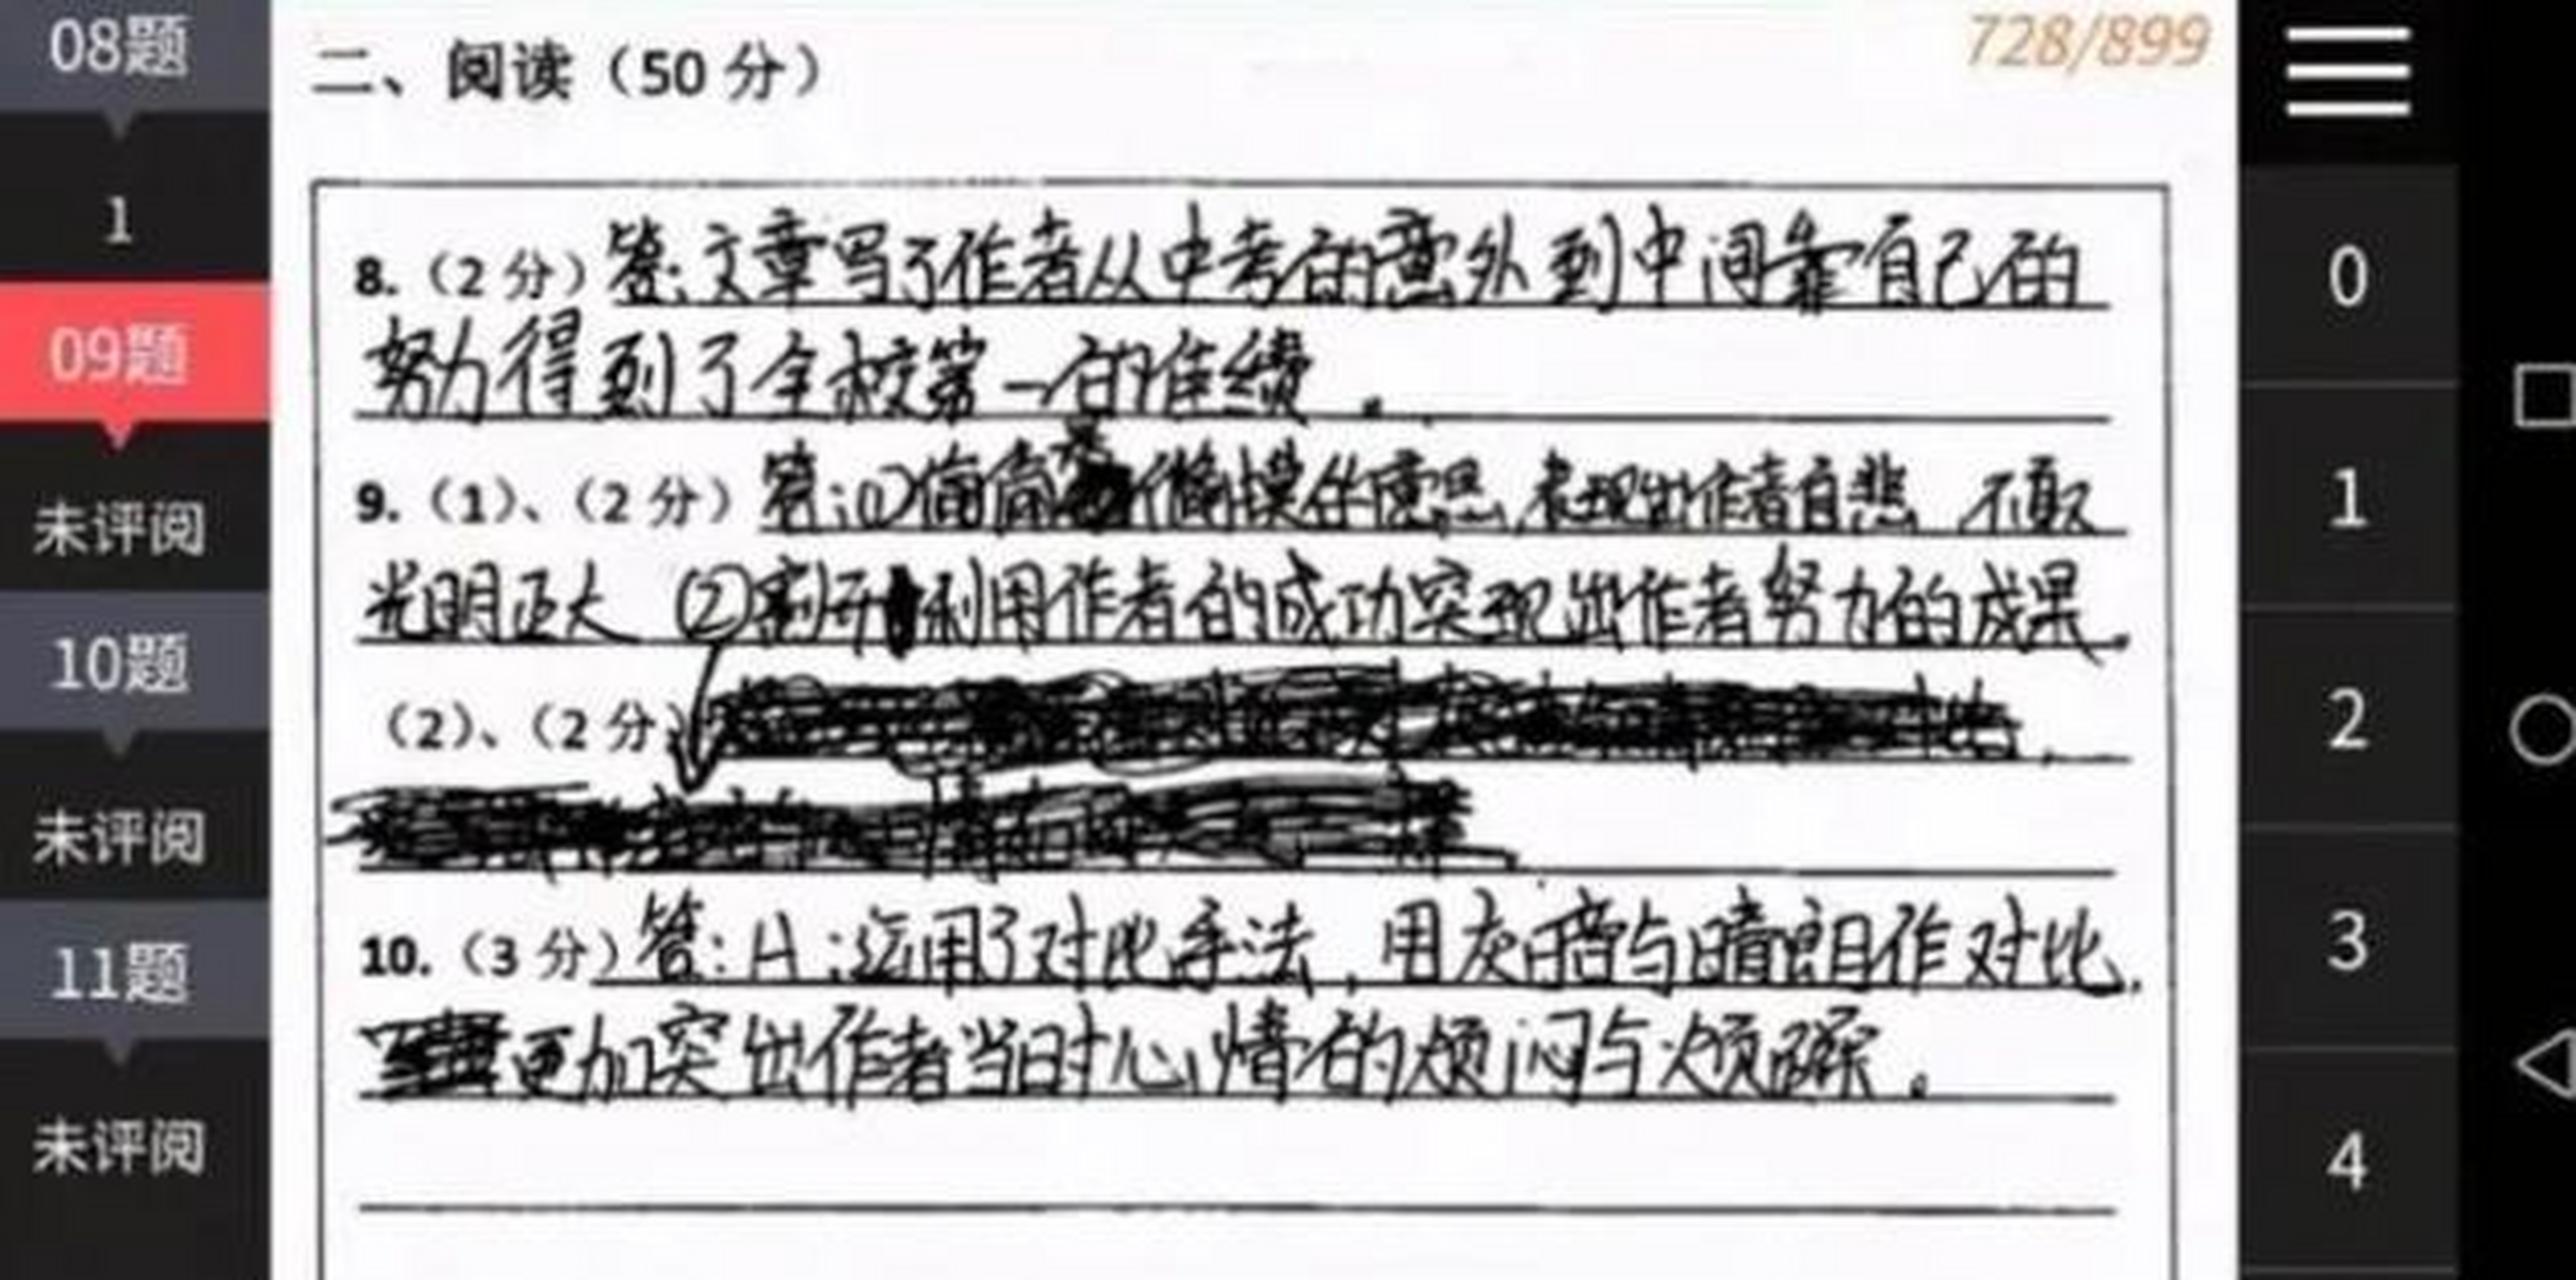 08题
1
09题
未评阅
10题
未评阅
11题
未评阅
二、阅读（50分）
728/899
8.（2分）答:文章写了作者从中考的意外到中间靠自己的
努力得到了全校第一的佳绩。
9.（1）、（2分）答:①偷偷 偷摸的意思,表现出作者自悲 不敢
光明正大 ②割开利用作者的成功突现出作者努力的成果.
（2）、（2分）
10.（3分）答:A:运用了对比手法,用灰暗与晴朗作对比.
更加突出作者当时心情的烦闷与烦躁。
0
1
2
3
4